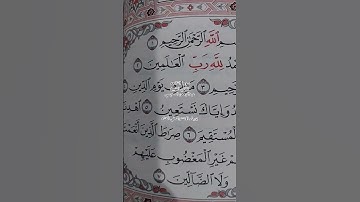 ـمِ ٱللَّهِ ٱلرَّحْمَٰنِ ٱلرَّحِيمِ ١
ـدُ لِلَّهِ رَبِّ ٱلْعَٰلَمِينَ ٢
ـحِيمِ ٣ مَٰلِكِ يَوْمِ ٱلدِّينِ
ـدُ وَإِيَّاكَ نَسْتَعِينُ ٥ ٱهْدِنَا
ٱلْمُسْتَقِيمَ ٦ صِرَٰطَ ٱلَّذِينَ أَنْعَمْتَ
ـمْ غَيْرِ ٱلْمَغْضُوبِ عَلَيْهِمْ
وَلَا ٱلضَّآلِّينَ ٧